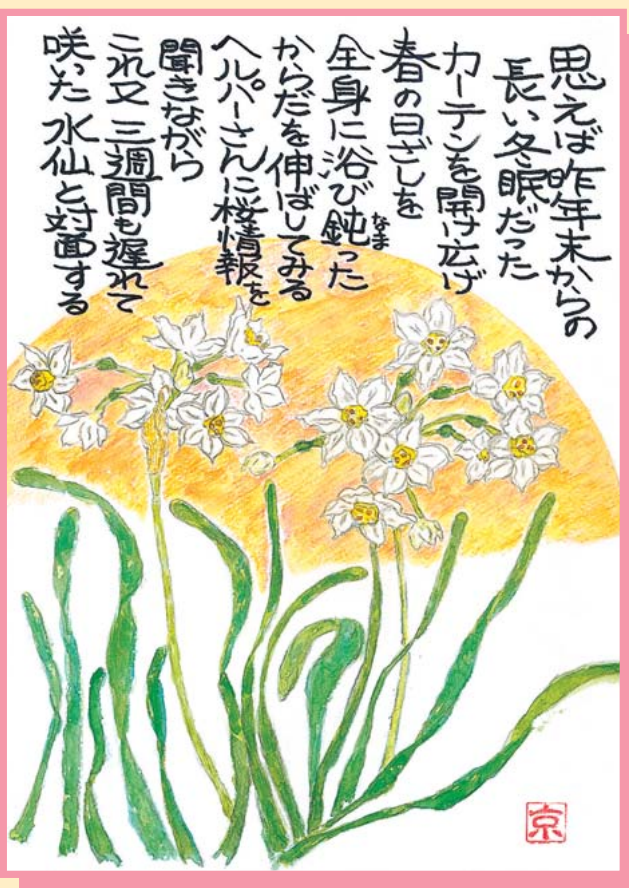 思えば昨年末からの
長い冬眠だった
カーテンを開け広げ
春の日ざしを
全身に浴び鈍った
なま
からだを伸ばしてみる
ヘルパーさんに桜情報を
聞きながら
これ又三週間も遅れて
咲いた水仙と対面する
京